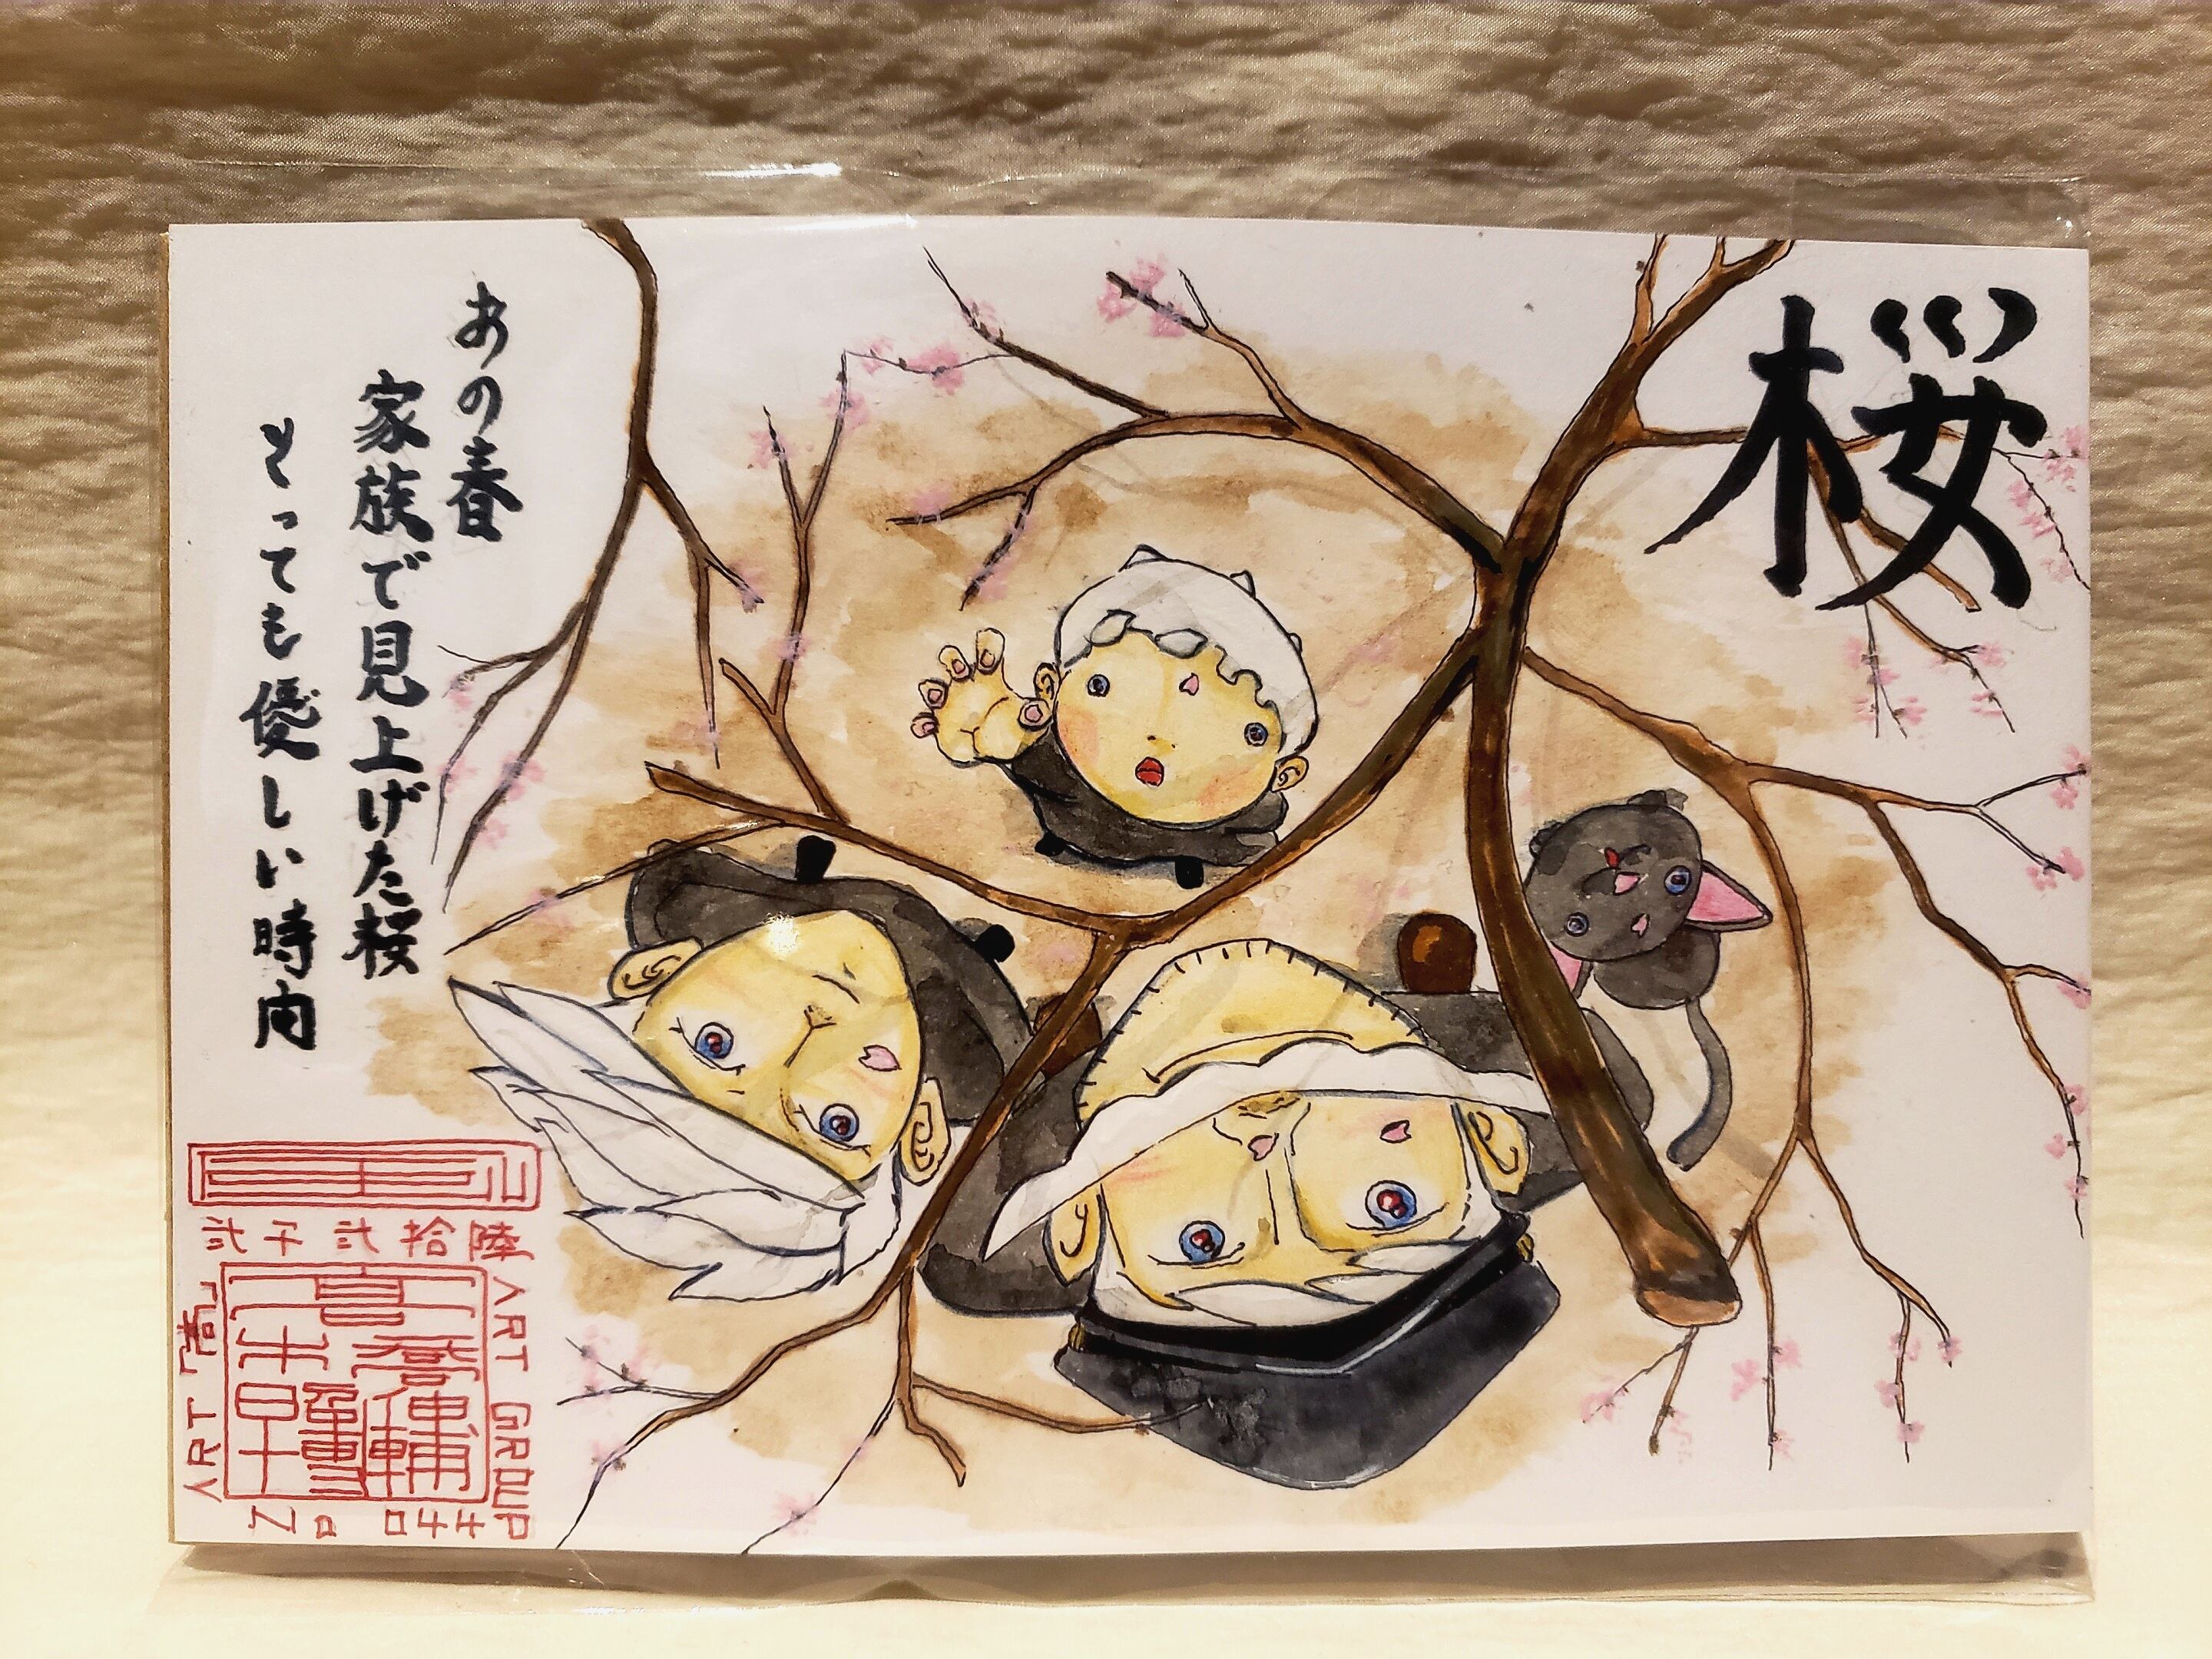 桜
あの春
家族で見上げた桜
とっても優しい時間
弐千弐拾陸
ART GROUP
ART「喜」
No 044